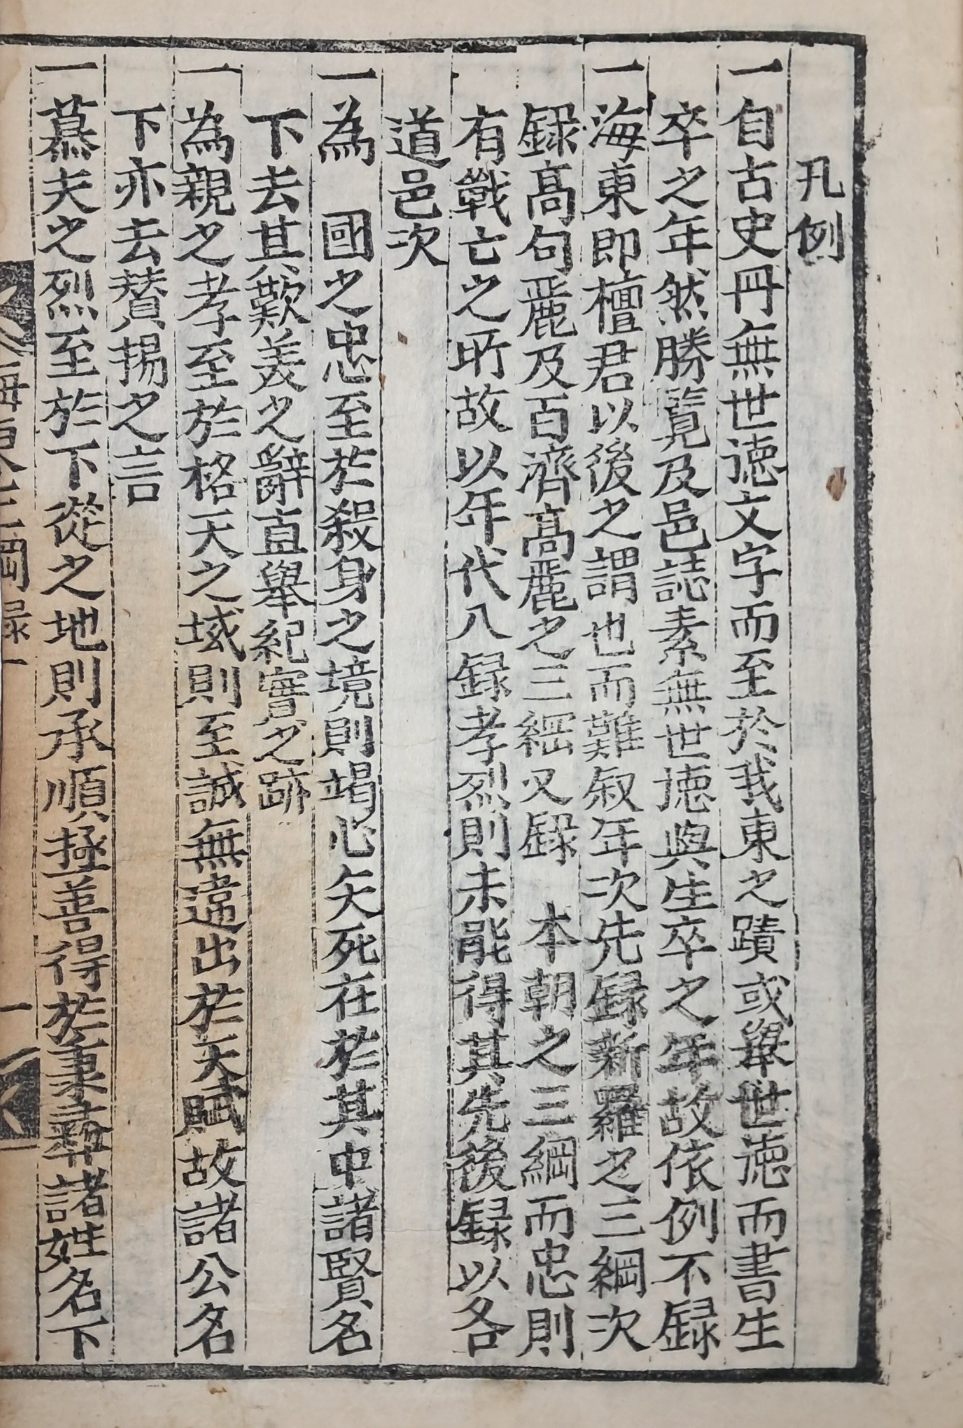 凡例
一自古史冊無世德文字而至於我東之蹟或舉世德而書生
卒之年然勝覽及邑誌素無世德與生卒之年故依例不録
一海東即檀君以後之謂也而難叙年次先録新羅之三綱次
録髙句麗及百濟髙麗之三綱又録 本朝之三綱而忠則
有戰亡之所故以年代入録孝烈則未能得其先後録以各
道邑次
一為 國之忠至於殺身之境則竭心矢死在於其中諸賢名
下去其歎美之辭直舉紀實之跡
一為親之孝至於格天之域則至誠無違出於天賦故諸公名
下亦去賛揚之言
一慕夫之烈至於下從之地則承順拯善得於秉彛諸姓名下
海東三綱録一 一